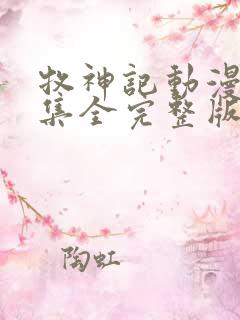 牧神記動漫
集全完整版
陶虹